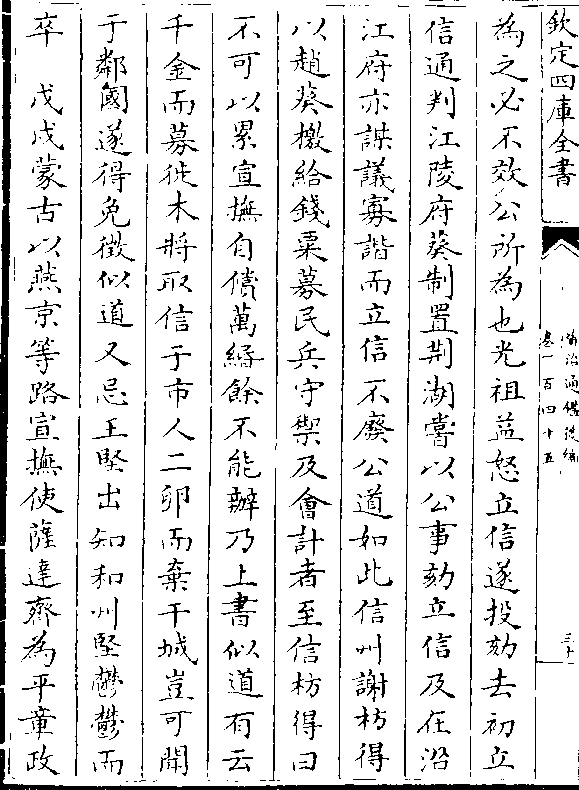 欽定四庫全書
資治通鑑後編
卷一百四十五
三十
為之必不效公所為也光祖益怒立信遂投劾去初立
信通判江陵府葵制置荆湖嘗以公事劾立信及在沿
江府亦謀議寡諧而立信不廢公道如此信州謝枋得
以趙葵檄給錢粟募民兵守禦及會計者至信枋得曰
不可以累宣撫自償萬緡餘不能辦乃上書似道有云
千金而募徙木將取信于市人二卵而棄干城豈可聞
于鄰國遂得免徵似道又忌王堅出知和州堅鬱鬱而
卒　戊戌蒙古以燕京等路宣撫使薩達齊為平章政